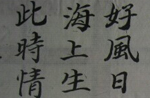 好風日
海上生
此時情